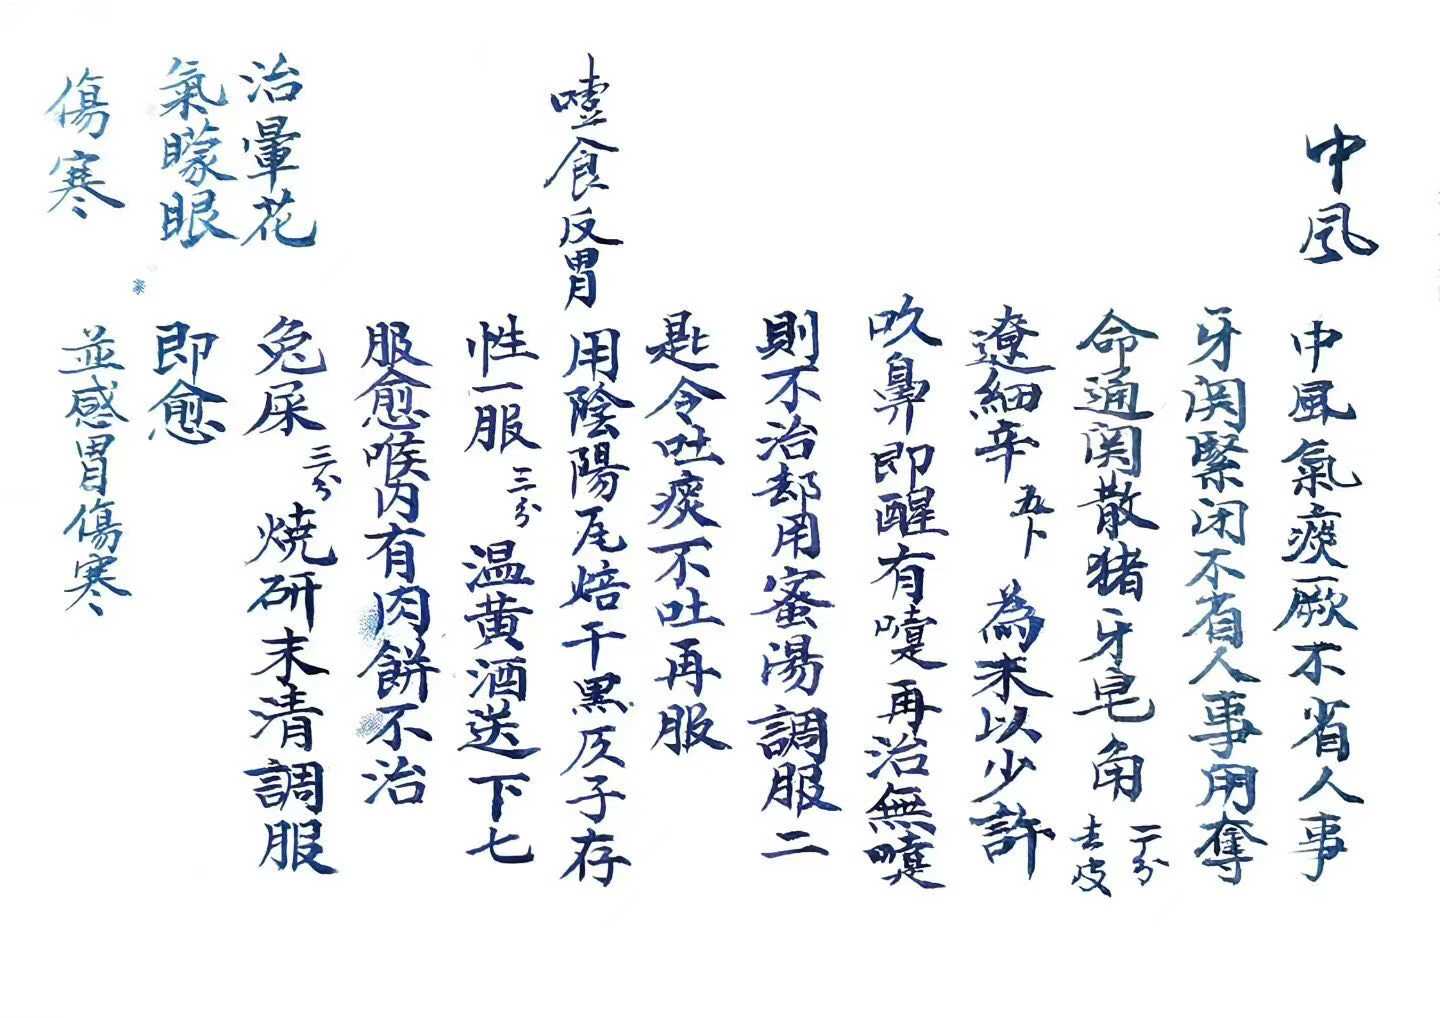 中風
中風氣痰厥不省人事
牙関緊闭不省人事用奪
命通関散猪牙皂角二分去皮
遼細辛五卜為末以少許
吹鼻即醒有嚏再治無嚏
則不治却用蜜湯調服二
匙令吐痰不吐再服
噎食反胃
用陰陽瓦焙干黑灰子存
性一服三分温黃酒送下七
服愈喉内有肉餅不治
治暈花
氣矇眼
兔屎三分燒研末清調服
即愈
傷寒
並感胃傷寒